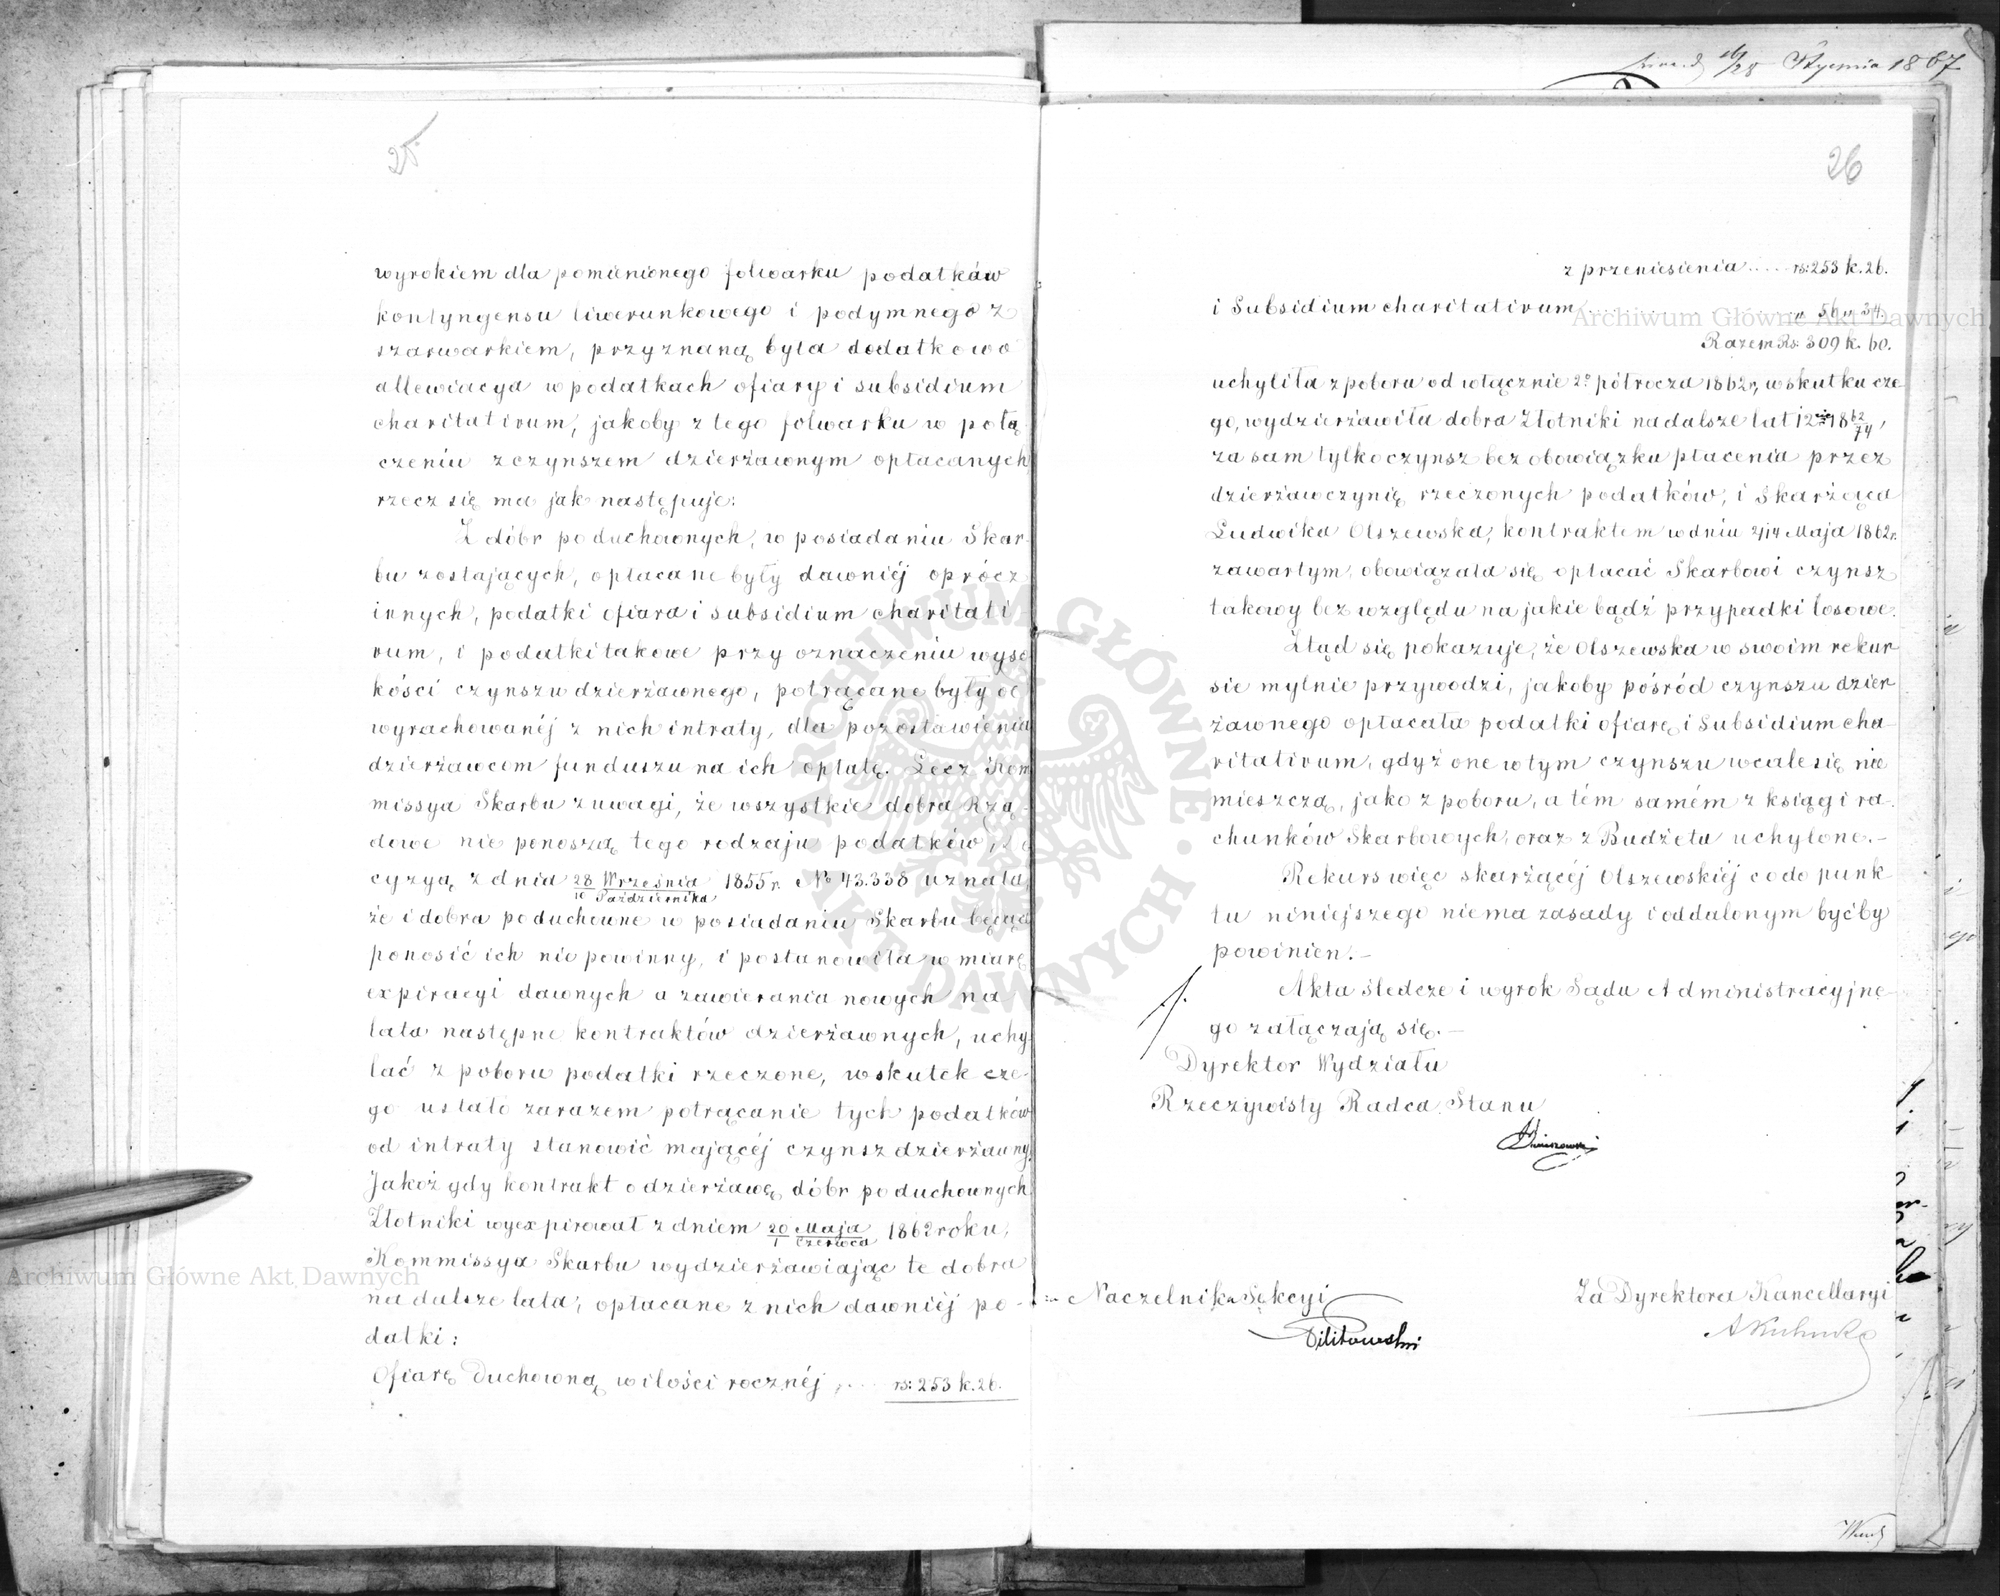 25
wyrokiem dla pomienionego folwarku podatków
kontyngensu liwerunkowego i podymnego z
szarwarkiem, przyznaną była dodatkowo
allewiacya w podatkach ofiary i subsidium
charitativum, jakoby z tego folwarku w połą
czeniu z czynszem dzierżawnym opłacanych
rzecz się ma jak następuje:
Z dóbr poduchownych, w posiadaniu Skar-
bu zostających, opłacane były dawniéj oprócz
innych, podatki ofiara i subsidium charitati-
vum, i podatki takowe przy oznaczeniu wyso
kości czynszu dzierżawnego, potrącane były od
wyrachowanéj z nich intraty, dla pozostawienia
dzierżawcom funduszu na ich opłatę. Lecz Kom
missya Skarbu z uwagi, że wszystkie dobra Rzą-
dowe nie ponoszą tego rodzaju podatków, de
cyzyą z dnia 28 Września / 10 Października 1855 r. No 43.338 uznała,
że i dobra poduchowne w posiadaniu Skarbu będąc
ponosić ich nie powinny, i postanowiła w miarę
expiracyi dawnych a zawierania nowych na
lata następne kontraktów dzierżawnych, uchy
lać z poboru podatki rzeczone, wskutek cze-
go ustało zarazem potrącanie tych podatków
od intraty stanowić mającéj czynsz dzierżawny.
Jakoż gdy kontrakt o dzierżawę dóbr poduchownych
Złotniki wyexpirował z dniem 20 Maja / 1 Czerwca 1862 roku,
Kommissya Skarbu wydzierżawiając te dobra
na dalsze lata, opłacane z nich dawniéj po-
datki:
Ofiarę Duchowną w ilości rocznéj, .... rs: 253 k. 26.
16/28 Stycznia 1867
26
z przeniesienia ..... rs: 253 k. 26.
i Subsidium charitativum ..... " 56 " 34.
Razem Rs. 309 k. 60.
uchyliła z poboru od włącznie 2o półrocza 1862 r, wskutku cze
go, wydzierżawiła dobra Złotniki na dalsze lat 12cie 1862/74,
za sam tylko czynsz bez obowiązku płacenia przez
dzierżawczynię rzeczonych podatków, i Skarżąca
Ludwika Olszewska, kontraktem w dniu 2/14 Maja 1862 r.
zawartym, obowiązała się opłacać Skarbowi czynsz
takowy bez względu na jakie bądź przypadki losowe.
Ztąd się pokazuje, że Olszewska w swoim rekur
sie mylnie przywodzi, jakoby pośród czynszu dzier
żawnego opłacała podatki ofiarę i Subsidium cha-
ritativum, gdyż one w tym czynszu wcale się nie
mieszczą, jako z poboru, a tém samém z ksiąg i ra.
chunków Skarbowych, oraz z Budżetu uchylone.-
Rekurs więc skarżącéj Olszewskiéj co do punk-
tu niniejszego niema zasady i oddalonym byćby
powinien.-
Akta śledcze i wyrok Sądu Administracyjne-
go załączają się.-
Dyrektor Wydziału
Rzeczywisty Radca Stanu
Naczelnik Sekcyi
Za Dyrektora Kancellaryi
Archiwum Główne Akt Dawnych
Archiwum Główne Akt Dawnych
ARCHIWUM GŁÓWNE AKT DAWNYCH